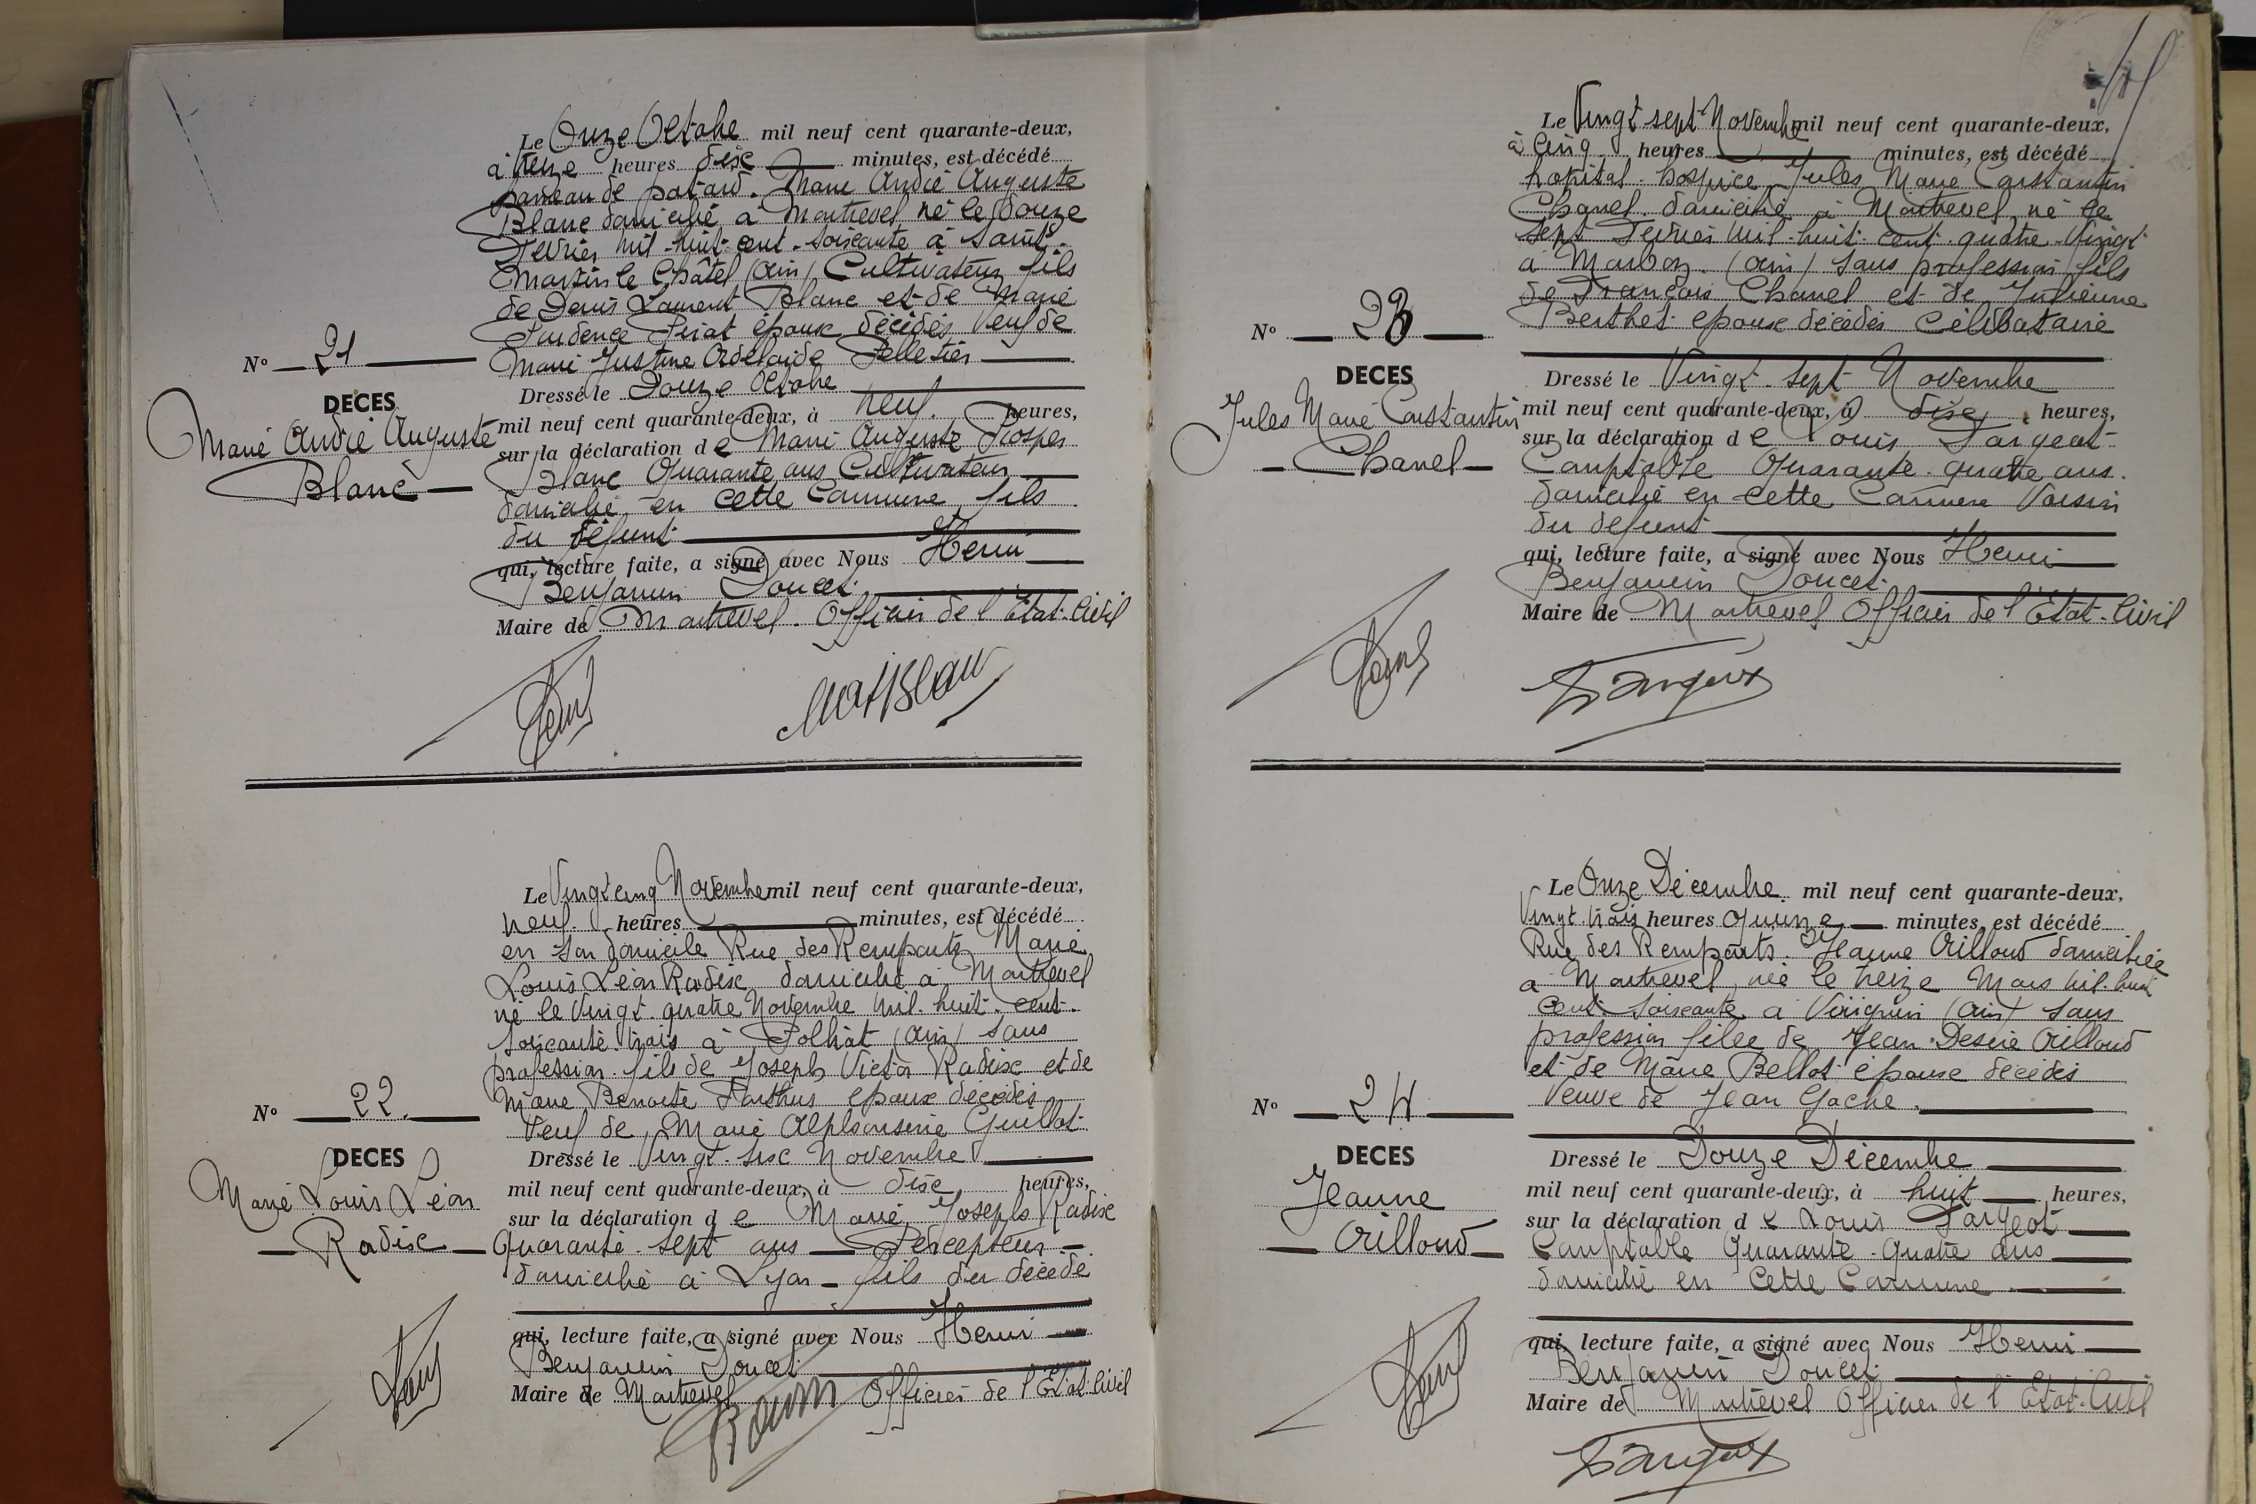 Le Onze Octobre mil neuf cent quarante-deux,
à treize heures dix minutes, est décédé
hameau de Marie André Auguste
Blanc domicilié à Montrevel né le douze
Février mil huit cent soixante à Saint
Martin le Châtel (Ain) Cultivateur fils
de Denis Laurent Blanc et de Marie
Prudence époux décédés Veuf de
Marie Justine Adélaïde Pelletier
N° 21
DECES
Marie André Auguste
Blanc
Dressé le Douze Octobre
mil neuf cent quarante-deux, à neuf heures,
sur la déclaration de Marie Auguste Prosper
Blanc Quarante ans Cultivateur
domicilié en cette Commune fils
du défunt
qui, lecture faite, a signé avec Nous Henri
Benjamin Doucet
Maire de Montrevel. Officier de l'Etat-Civil
Le Vingt cinq Novembre mil neuf cent quarante-deux,
neuf heures minutes, est décédé
en son domicile Rue des Remparts Marie
Louis Léon Radix domicilié à Montrevel
né le Vingt-quatre Novembre mil-huit-cent-
soixante-trois à Polliat (Ain) sans
profession fils de Joseph Victor Radix et de
Marie Benoite époux décédés
Veuf de Marie Alphonsine Guillot
N° 22.
DECES
Marie Louis Léon
Radix
Dressé le Vingt-six Novembre
mil neuf cent quarante-deux, à dix heures,
sur la déclaration de Marie Joseph Radix
Quarante-sept ans Percepteur
domicilié à Lyon fils du décédé
qui, lecture faite, a signé avec Nous Henri
Benjamin Doucet
Maire de Montrevel Officier de l'Etat-Civil
Le Vingt-sept Novembre mil neuf cent quarante-deux,
à Cinq heures minutes, est décédé
hopital-hospice Jules Marie Constantin
Chanel domicilié à Montrevel né le
sept Février mil-huit-cent-quatre-vingt
à Marboz (Ain) sans profession fils
de François Chanel et de Julienne
Berthet époux décédés Célibataire
N° 23
DECES
Jules Marie Constantin
Chanel
Dressé le Vingt-sept Novembre
mil neuf cent quarante-deux, à dix heures,
sur la déclaration de Louis Fargeot
Comptable Quarante-quatre ans
domicilié en cette Commune Voisin
du défunt
qui, lecture faite, a signé avec Nous Henri
Benjamin Doucet
Maire de Montrevel Officier de l'Etat-Civil
Le Onze Décembre mil neuf cent quarante-deux,
Vingt-trois heures Quinze minutes, est décédé
Rue des Remparts. Jeanne Oilloud domiciliée
à Montrevel née le treize Mars mil-huit
cent soixante à (Ain) sans
profession fille de Jean Désiré Oilloud
et de Marie Bellot époux décédés
Veuve de Jean Gache.
N° 24
DECES
Jeanne
Oilloud
Dressé le Douze Décembre
mil neuf cent quarante-deux, à huit heures,
sur la déclaration de Louis Fargeot
Comptable Quarante-Quatre ans
domicilié en cette Commune
qui, lecture faite, a signé avec Nous Henri
Benjamin Doucet
Maire de Montrevel Officier de l'Etat-Civil